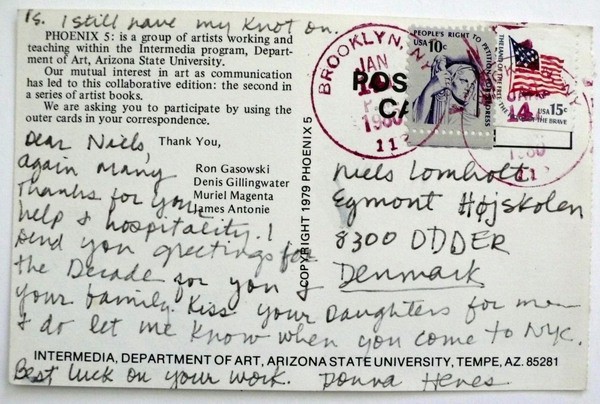 Ps. I still have my Knot on.
PHOENIX 5: is a group of artists working and
teaching within the Intermedia program, Depart-
ment of Art, Arizona State University.
Our mutual interest in art as communication
has led to this collaborative edition: the second in
a series of artist books.
We are asking you to participate by using the
outer cards in your correspondence.
Thank You,
Ron Gasowski
Denis Gillingwater
Muriel Magenta
James Antonie
Dear Niels,
again many
thanks for your
help & hospitality. I
send you greetings for
the Decade for you &
your family. Kiss your Daughters for me
& do let me know when you come to NYC.
Best luck on your work. Donna Henes.
COPYRIGHT 1979 PHOENIX 5
BROOKLYN, NY
JAN
14
1980
112
POS
CA
PEOPLE'S RIGHT TO PETITION FOR REDRESS
USA 10c
THE LAND OF THE FREE THE HOME OF THE BRAVE
USA 15c
Niels Lomholt
Egmont Højskolen
8300 ODDER
Denmark
INTERMEDIA, DEPARTMENT OF ART, ARIZONA STATE UNIVERSITY, TEMPE, AZ. 85281